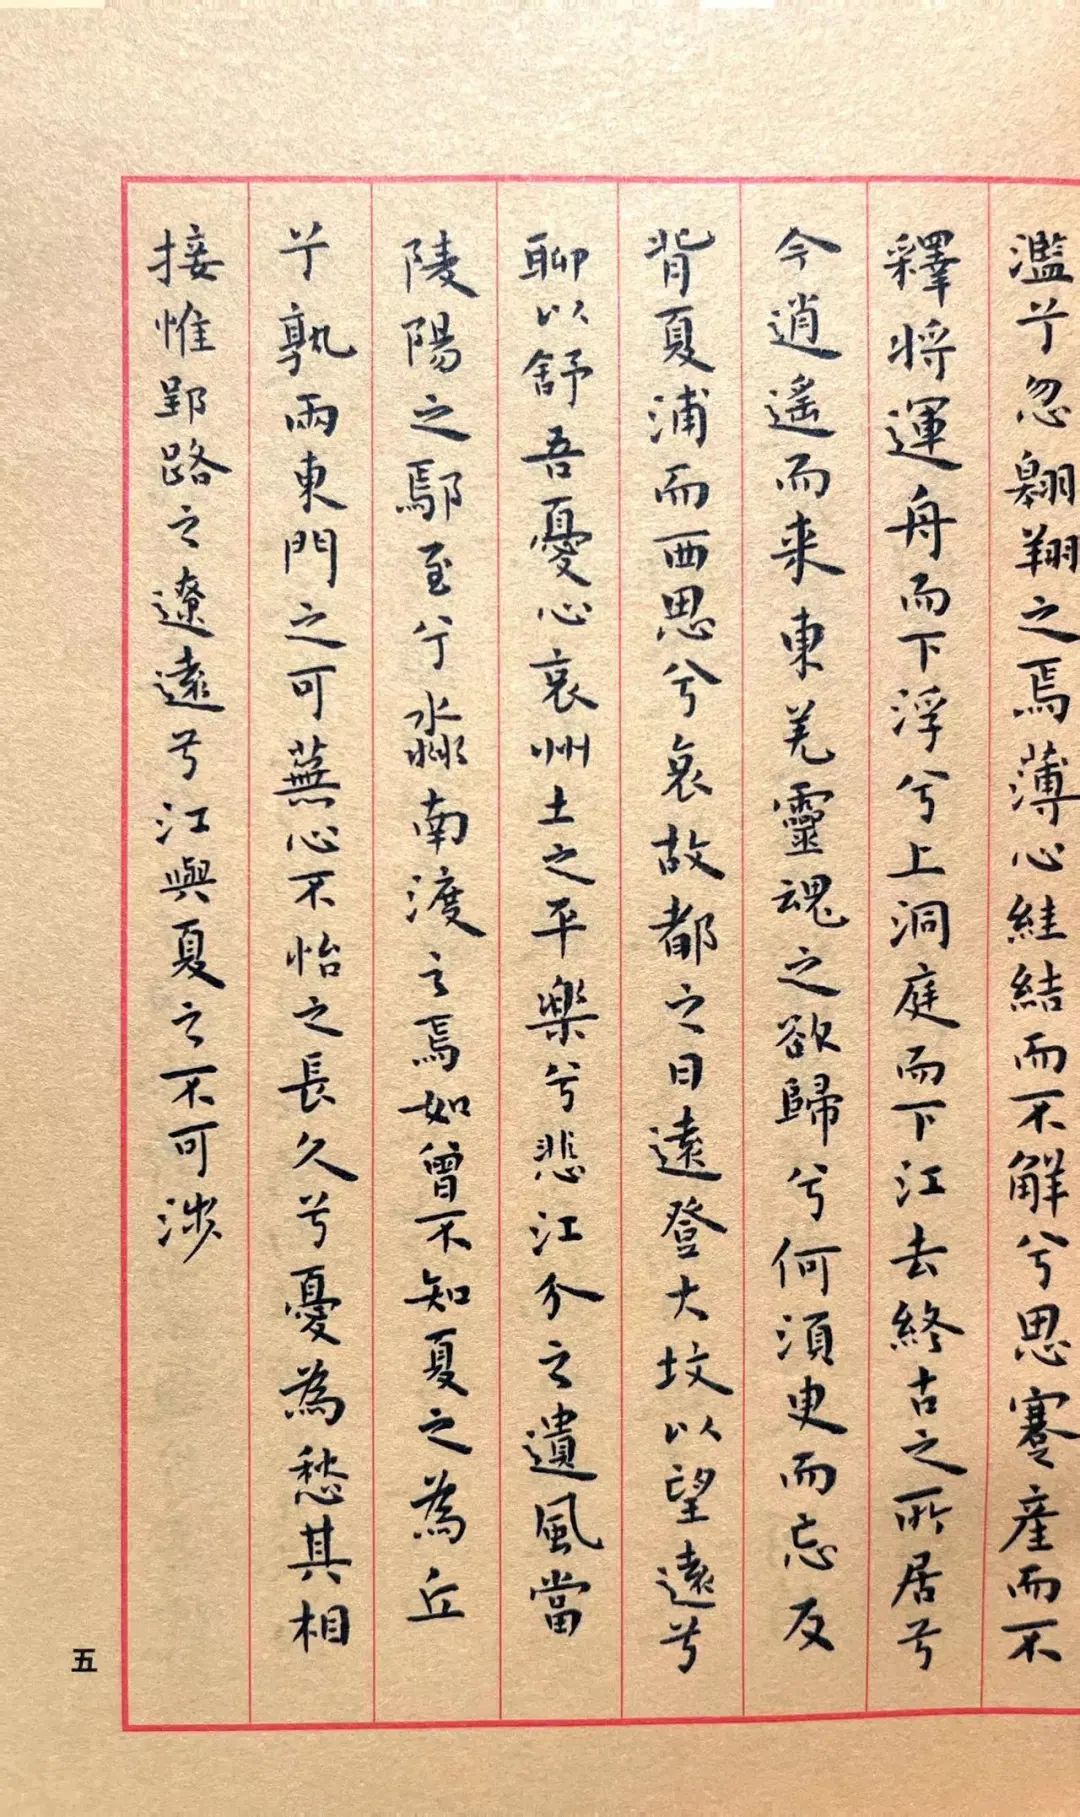 濫兮忽翱翔之焉薄心絓結而不解兮思蹇產而不
釋將運舟而下浮兮上洞庭而下江去終古之所居兮
今逍遙而来東羌靈魂之欲歸兮何須臾而忘反
背夏浦而西思兮哀故都之日遠登大坟以望遠兮
聊以舒吾憂心哀州土之平樂兮悲江介之遺風當
陵陽之鄢至兮淼南渡之焉如曾不知夏之為丘
兮孰兩東門之可蕪心不怡之長久兮憂為愁其相
接惟郢路之遼遠兮江與夏之不可涉
五